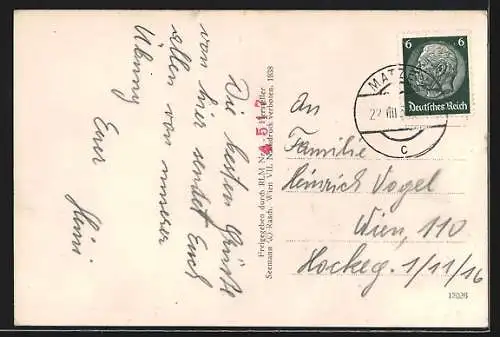 Die besten Grüße
von hier sendet Euch
allen von unserer
Übung
Euer
Heini
4517
Freigegeben durch RLM
Hersteller
Seemann
Rasch. Wien VII. Nachdruck verboten. 1938
6 6
Deutsches Reich
MATZ
22 VIII
c
An
Familie
Heinrich Vogel
Wien, 110
Hockeg. 1/11/16